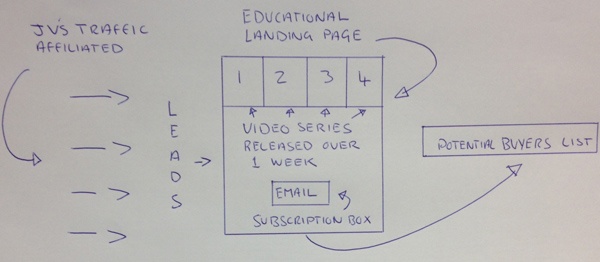 JV'S TRAFFIC
AFFILIATED
LEADS
EDUCATIONAL
LANDING PAGE
1 2 3 4
VIDEO SERIES
RELEASED OVER
1 WEEK
EMAIL
SUBSCRIPTION BOX
POTENTIAL BUYERS LIST